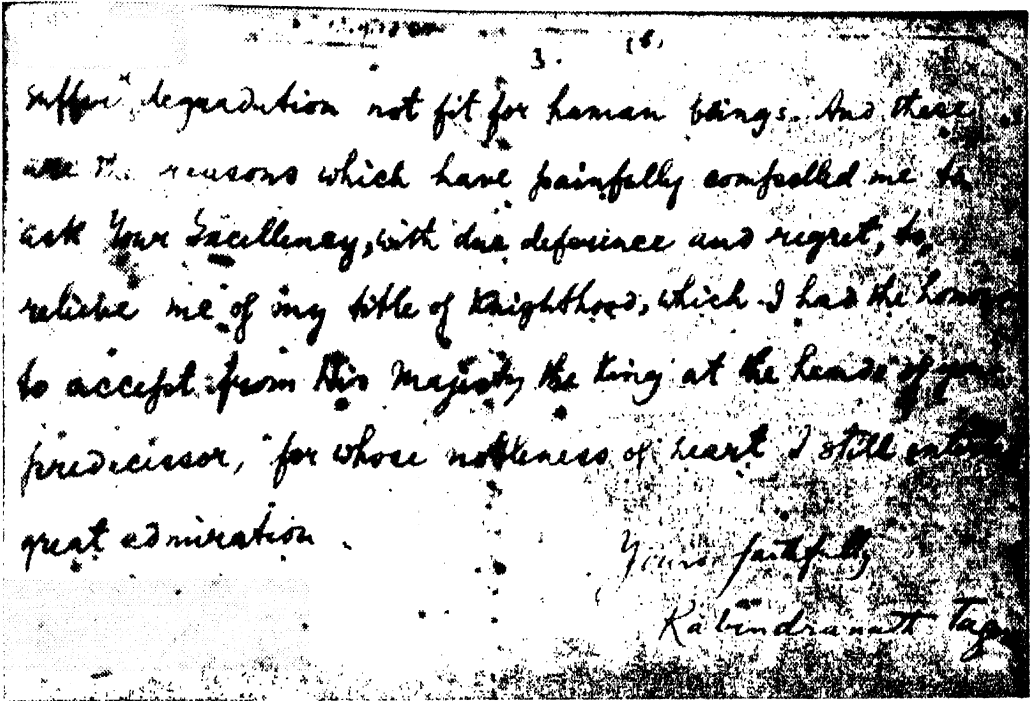 3.
suffer degradation not fit for human beings. And these
are the reasons which have painfully compelled me to
ask Your Excellency, with due deference and regret, to
relieve me of my title of Knighthood, which I had the honour
to accept from His Majesty the King at the hands of your
predecessor, for whose nobleness of heart I still entertain
great admiration.
Yours faithfully
Rabindranath Tagore